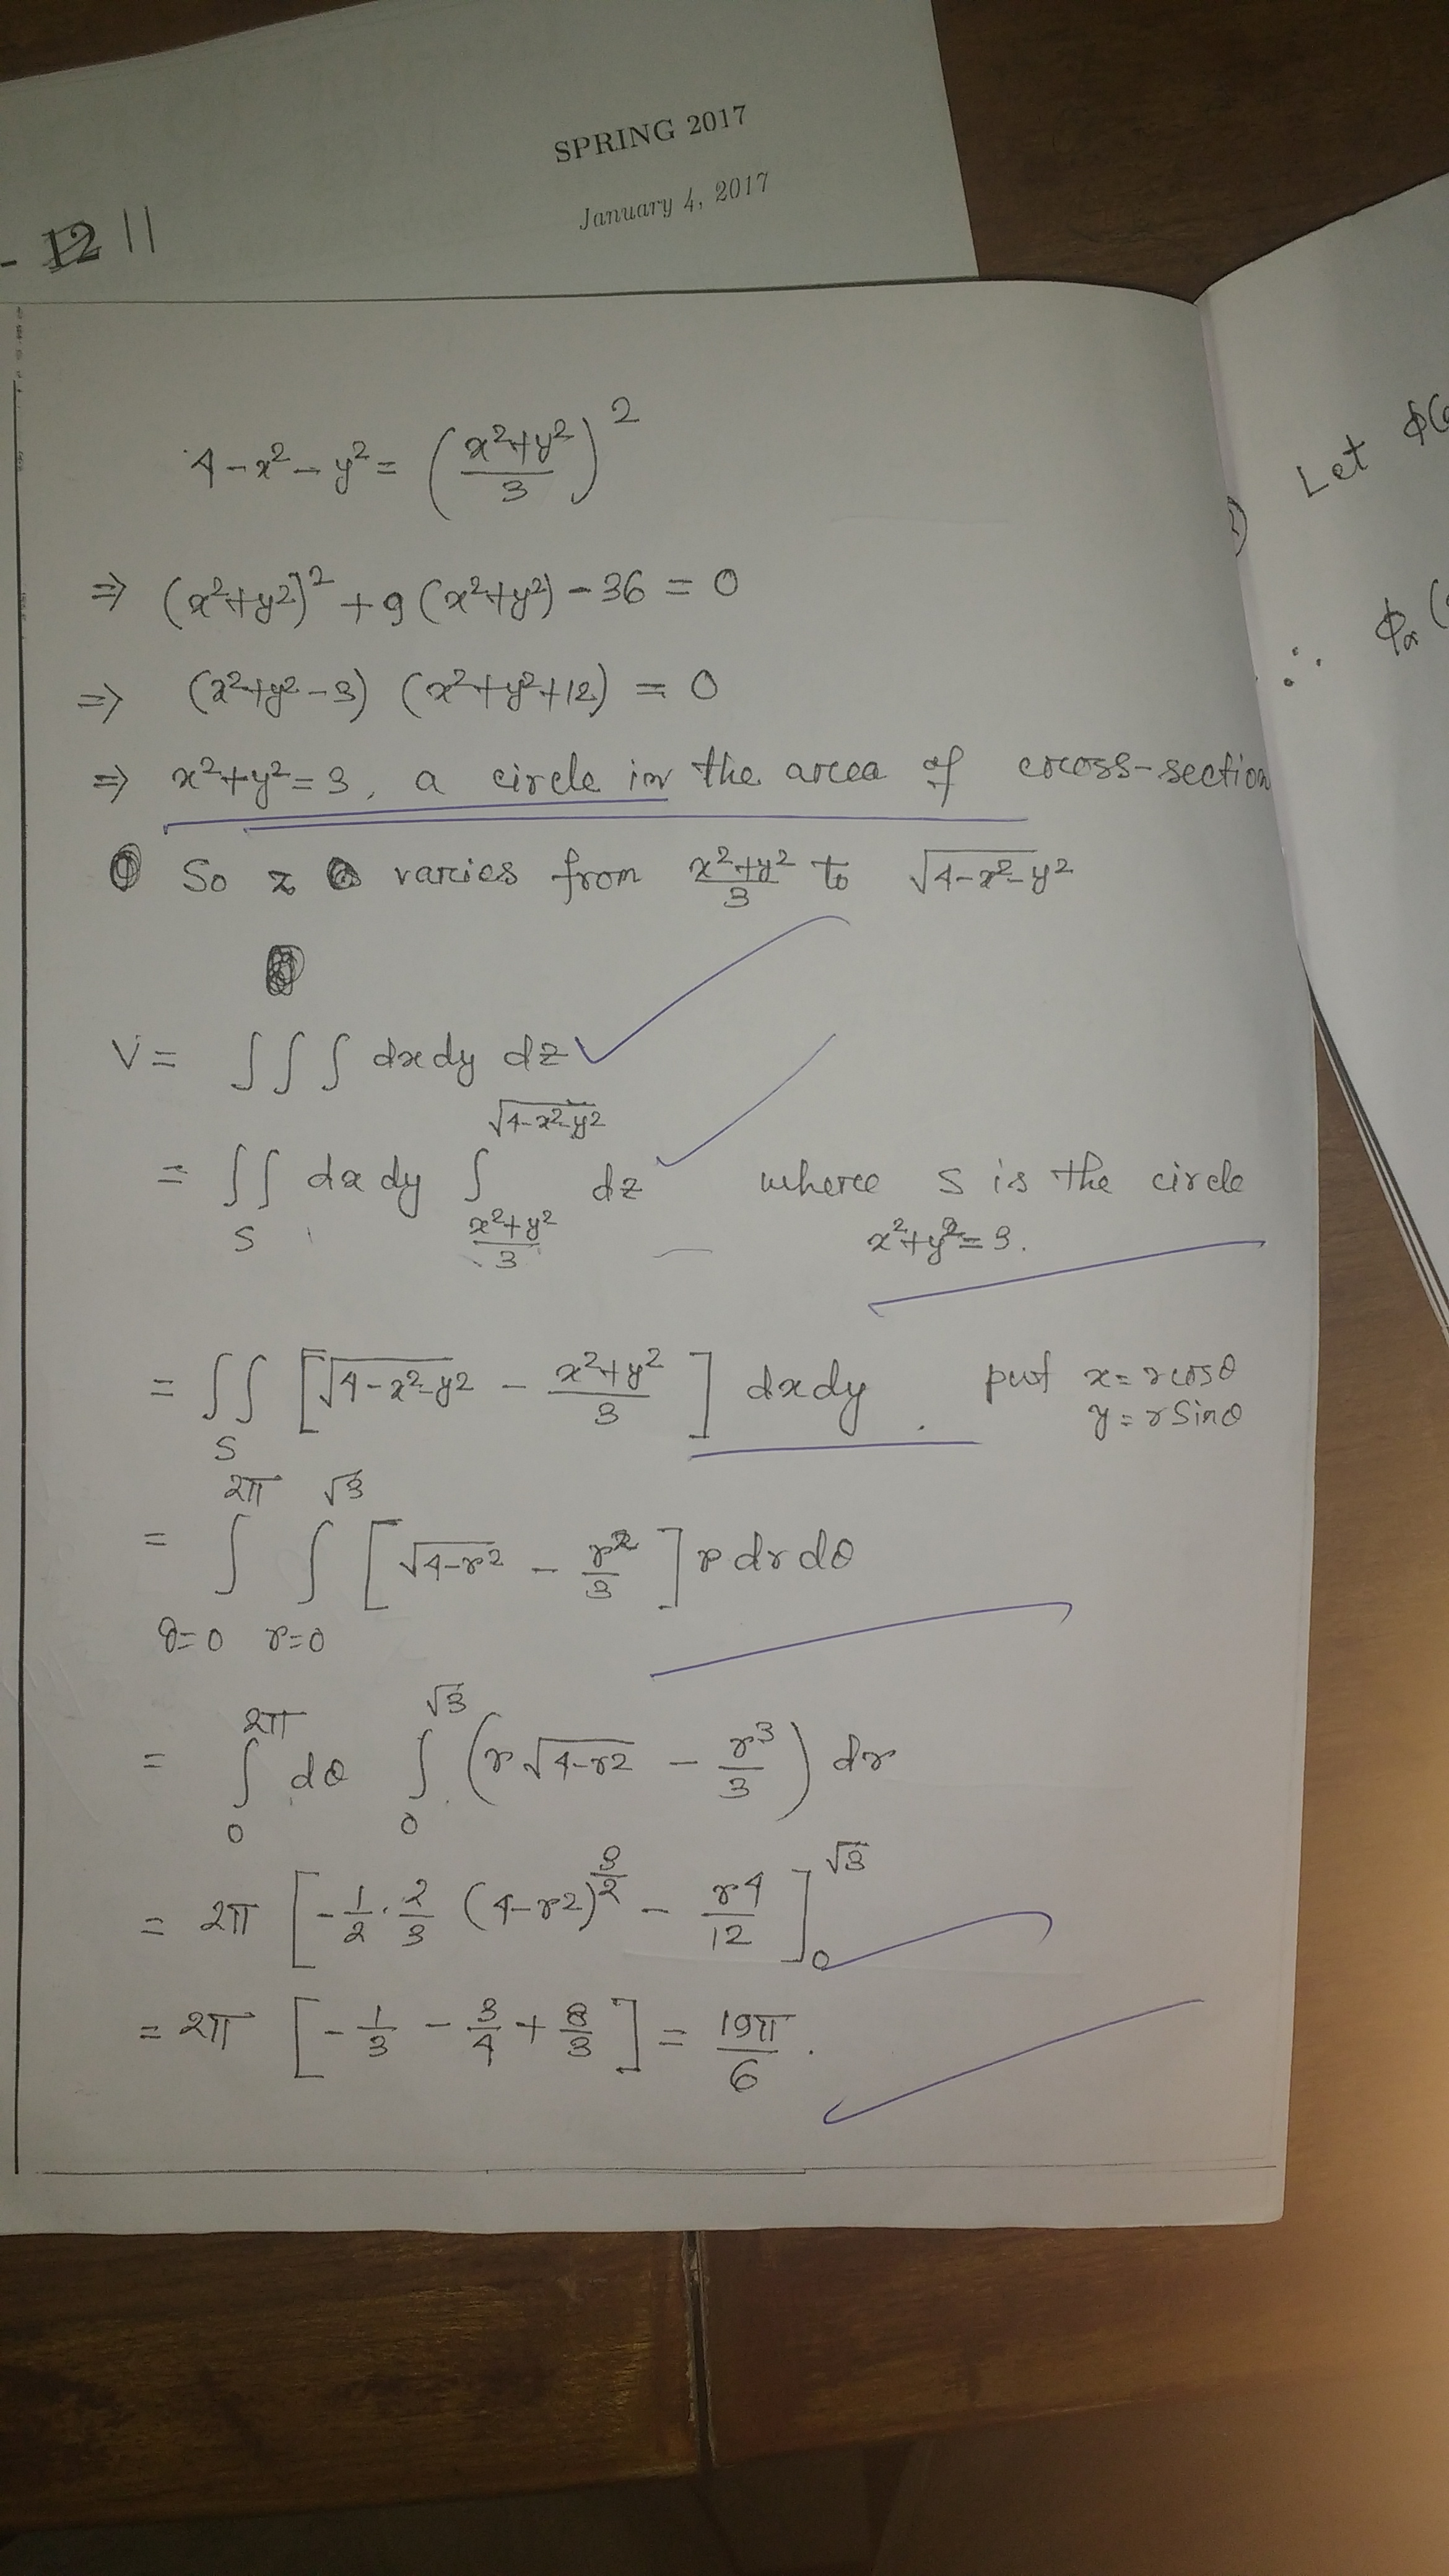 SPRING 2017
January 4, 2017
- 12 11
4 - x² - y² = ((x²+y²)/3)²
⇒ (x²+y²)² + 9 (x²+y²) - 36 = 0
⇒ (x²+y²-3) (x²+y²+12) = 0
⇒ x²+y² = 3, a circle in the area of cross-section
So z varies from (x²+y²)/3 to √(4-x²-y²)
V = ∫∫∫ dx dy dz
= ∫∫_S dx dy ∫_{(x²+y²)/3}^{√(4-x²-y²)} dz where S is the circle
x²+y² = 3.
= ∫∫_S [√(4-x²-y²) - (x²+y²)/3] dx dy. put x = r cosθ
y = r sinθ
= ∫_{θ=0}^{2π} ∫_{r=0}^{√3} [√(4-r²) - r²/3] r dr dθ
= ∫_0^{2π} dθ ∫_0^{√3} (r√(4-r²) - r³/3) dr
= 2π [-1/2 · 2/3 (4-r²)^{3/2} - r⁴/12]_0^{√3}
= 2π [-1/3 - 3/4 + 8/3] = 19π/6.
Let ϕ(
∴ ϕx (